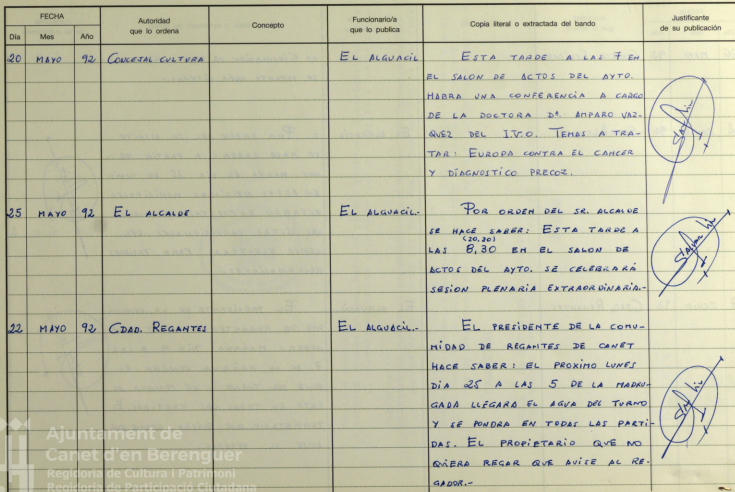 FECHA
Autoridad
que lo ordena
Concepto
Funcionario/a
que lo publica
Copia literal o extractada del bando
Justificante
de su publicación
Día Mes Año
20 MAYO 92 CONCEJAL CULTURA EL ALGUACIL ESTA TARDE A LAS 7 EN
EL SALON DE ACTOS DEL AYTO.
HABRA UNA CONFERENCIA A CARGO
DE LA DOCTORA Dª. AMPARO VAZ-
QUEZ DEL I.V.O. TEMAS A TRA-
TAR: EUROPA CONTRA EL CANCER
Y DIAGNOSTICO PRECOZ.
25 MAYO 92 EL ALCALDE EL ALGUACIL.- POR ORDEN DEL SR. ALCALDE
SE HACE SABER: ESTA TARDE A
(20,30)
LAS 8,30 EN EL SALON DE
ACTOS DEL AYTO. SE CELEBRARÁ
SESION PLENARIA EXTRAORDINARIA.-
22 MAYO 92 CDAD. REGANTES EL ALGUACIL.- EL PRESIDENTE DE LA COMU-
NIDAD DE REGANTES DE CANET
HACE SABER: EL PROXIMO LUNES
DIA 25 A LAS 5 DE LA MADRU-
GADA LLEGARA EL AGUA DEL TURNO
Y SE PONDRA EN TODAS LAS PARTI-
DAS. EL PROPIETARIO QUE NO
QUIERA REGAR QUE AVISE AL RE-
GADOR.-
Ajuntament de
Canet d'en Berenguer
Regidoria de Cultura i Patrimoni
Regidoria de Participació Ciutadana